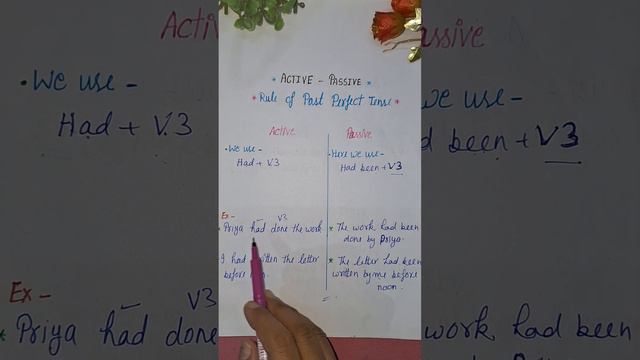 * ACTIVE - PASSIVE *
* Rule of Past Perfect Tense *
Active
• We use -
Had + V3
Ex -
V3
• Priya had done the work
I had written the letter
before noon.
Passive
• Here we use -
Had been + V3
* The work had been
done by Priya.
* The letter had been
written by me before
noon.
Activ
• We use -
Had + V.3
Ex -
V3
* Priya had done
assive
we use -
d been + V3
work had been